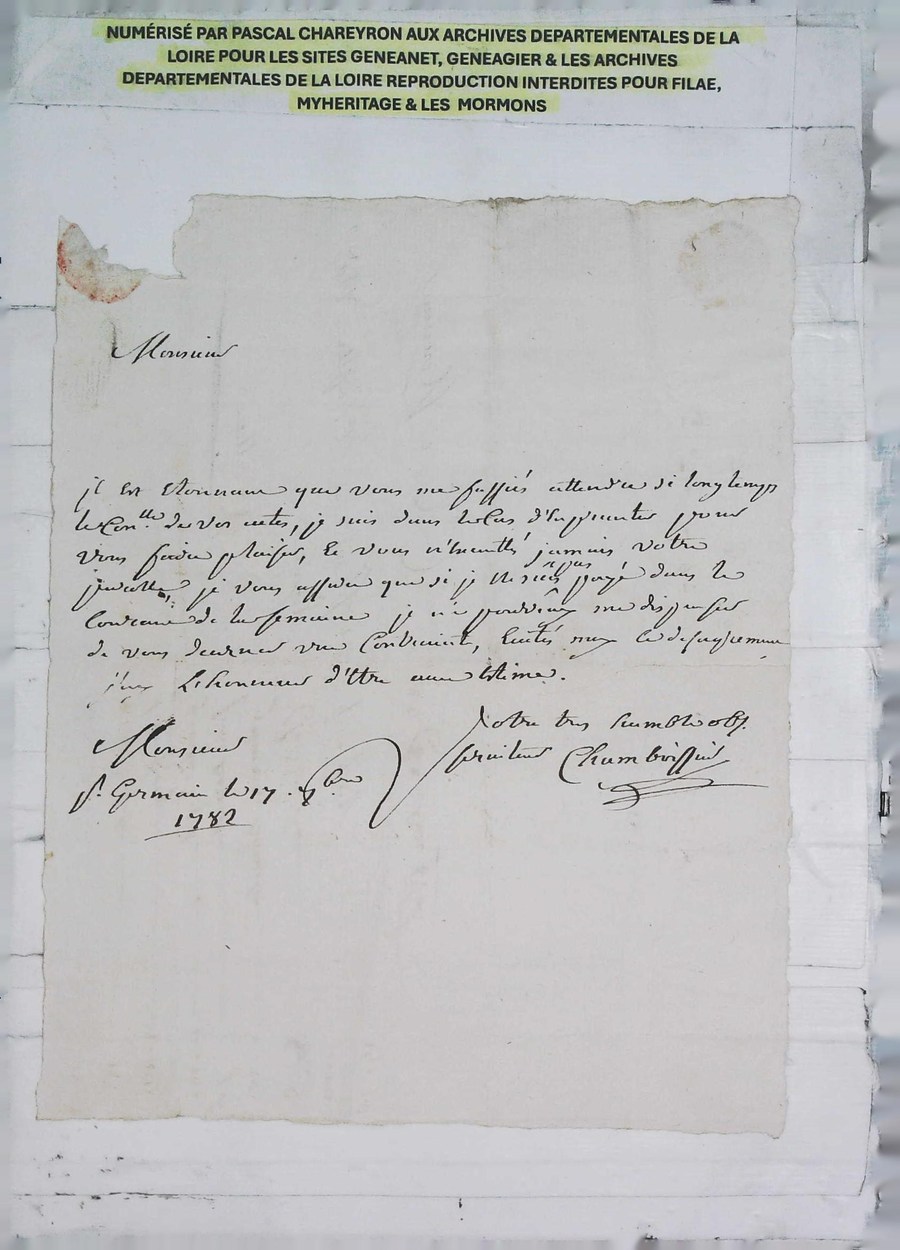 NUMÉRISÉ PAR PASCAL CHAREYRON AUX ARCHIVES DEPARTEMENTALES DE LA
LOIRE POUR LES SITES GENEANET, GENEAGIER & LES ARCHIVES
DEPARTEMENTALES DE LA LOIRE REPRODUCTION INTERDITES POUR FILAE,
MYHERITAGE & LES MORMONS
Monsieur
jl Est Etonnant que vous me fassiés attendre si longtemps
le Con.lle de vos actes, je suis dans le Cas d'Emprunter pour
vous faire plaisir, Et vous n'Executés jamais votre
parolle, je vous assure que si je ne suis pas payé dans le
Courant de la semaine je ne pourrois me dispenser
de vous donner une Contrainte, Evités moy ce desagrement
j'ay L'honneur d'Etre avec Estime.
Monsieur
Votre tres humble ob.
serviteur Chamboissier
S. Germain le 17. bre
1782